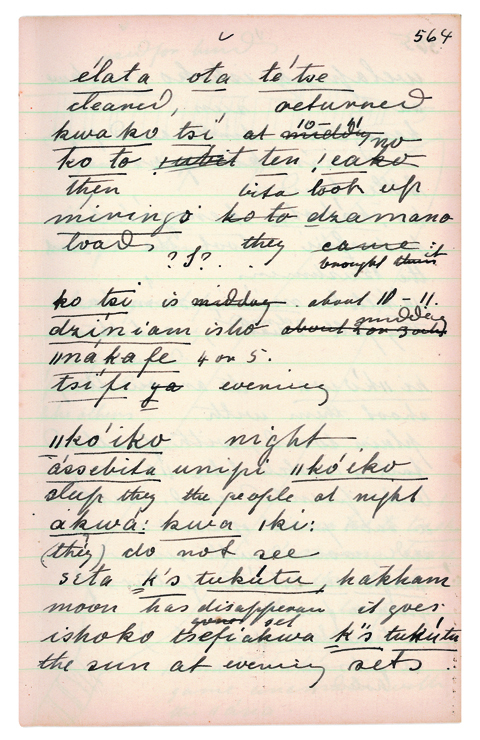 564
élata ota té'tse
cleaned, returned
kwa ko tsi at middday 10 - 11 no
ko to ten !eako
then bita look up
miringo ko to dzamana
loads they came:
? S? . . brought them
ko tsi is midday . about 10 - 11.
dziniam isho about midday
ǁnákafe 4 or 5.
tsifi ya evening
ǁkóiko night
ássebita unipi ǁkóiko
slup they the people at night
akwá: kwa ıki:
(they) do not see
seta k's tukútu hakham
moon has disapperan it goes
ishoko tsefiakwa k"s tukútu
the sun at evening sets